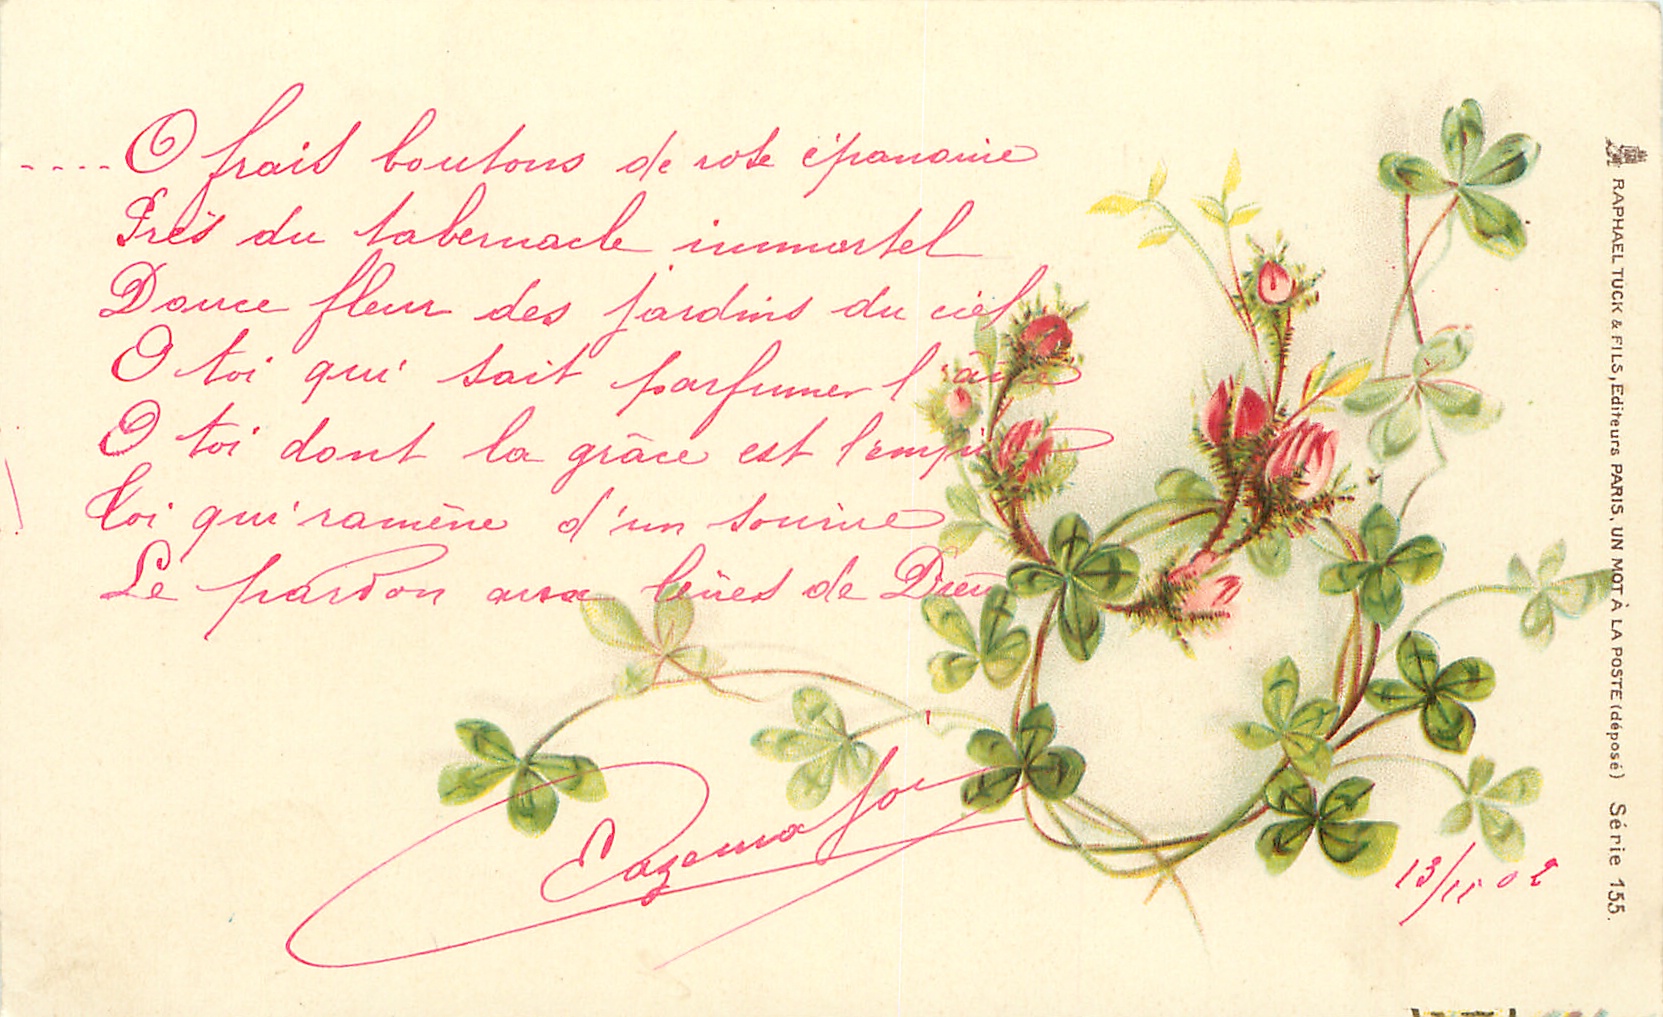 ....O frais boutons de rose épanouie
Près du tabernacle immortel
Douce fleur des jardins du ciel
O toi qui sait parfumer l'âme
O toi dont la grâce est l'empire
Toi qui ramène d'un sourire
Le pardon aux lèvres de Dieu
13/11 02
RAPHAEL TUCK & FILS, Editeurs PARIS, UN MOT À LA POSTE (déposé) Série 155.